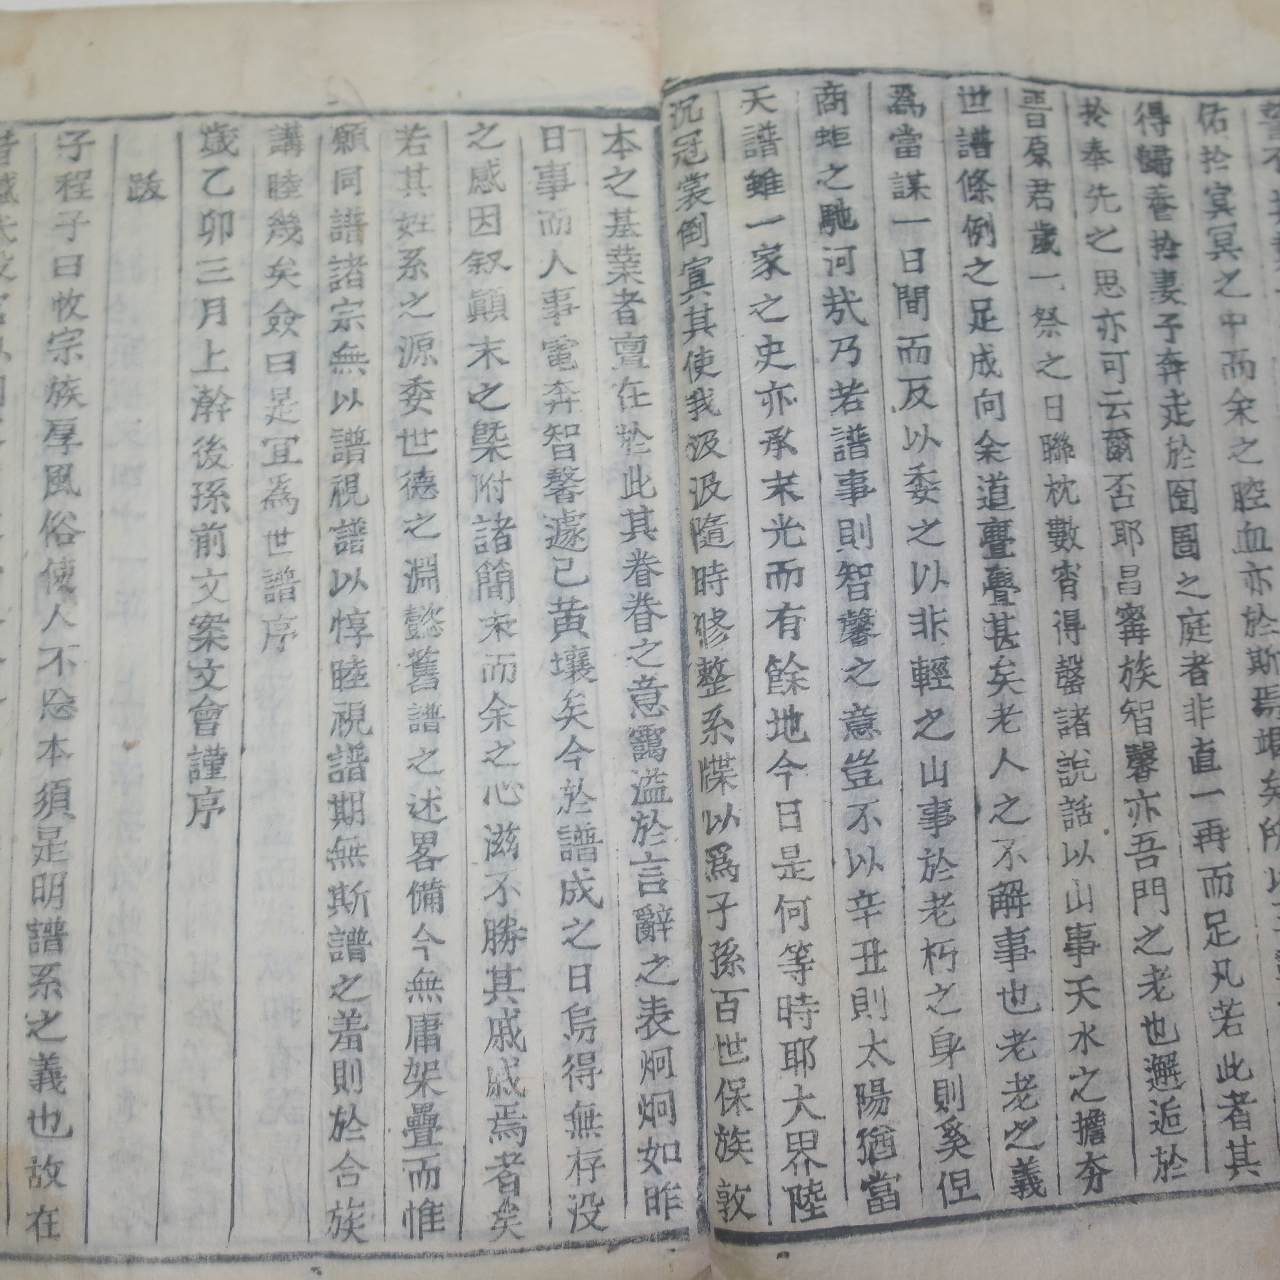 佑於冥冥之中而余之腔血亦於斯焉竭矣所以
得歸養於妻子奔走於囹圄之庭者非直一再而足凡若此者其
於奉先之思亦可云爾否耶昌寗族智馨亦吾門之老也邂逅於
晋原君歲一祭之日聯枕數宵得罄諸說話以山事天水之擔夯
世譜條例之足成向余道亹亹甚矣老人之不解事也老老之義
爲當謀一日間而反以委之以非輕之山事於老朽之身則奚但
商蚷之馳河㢤乃若譜事則智馨之意豈不以辛丑則太陽猶當
天譜雖一家之史亦承末光而有餘地今日是何等時耶大界陸
沉冠裳倒寘其使我汲汲隨時修整系牒以爲子孫百世保族敦
本之基業者亶在於此其眷眷之意靄溢於言辭之表炯炯如昨
日事而人事電奔智馨遽已黃壤矣今於譜成之日烏得無存没
之感因叙顚末之槩附諸簡末而余之心滋不勝其戚戚焉者矣
若其姓系之源委世德之淵懿舊譜之述畧備今無庸架疊而惟
願同譜諸宗無以譜視譜以惇睦視譜期無斯譜之羞則於合族
講睦幾矣僉曰是宜爲世譜序
歲乙卯三月上澣後孫前文案文會謹序
跋
子程子曰收宗族厚風俗使人不忘本須是明譜系之義也故在